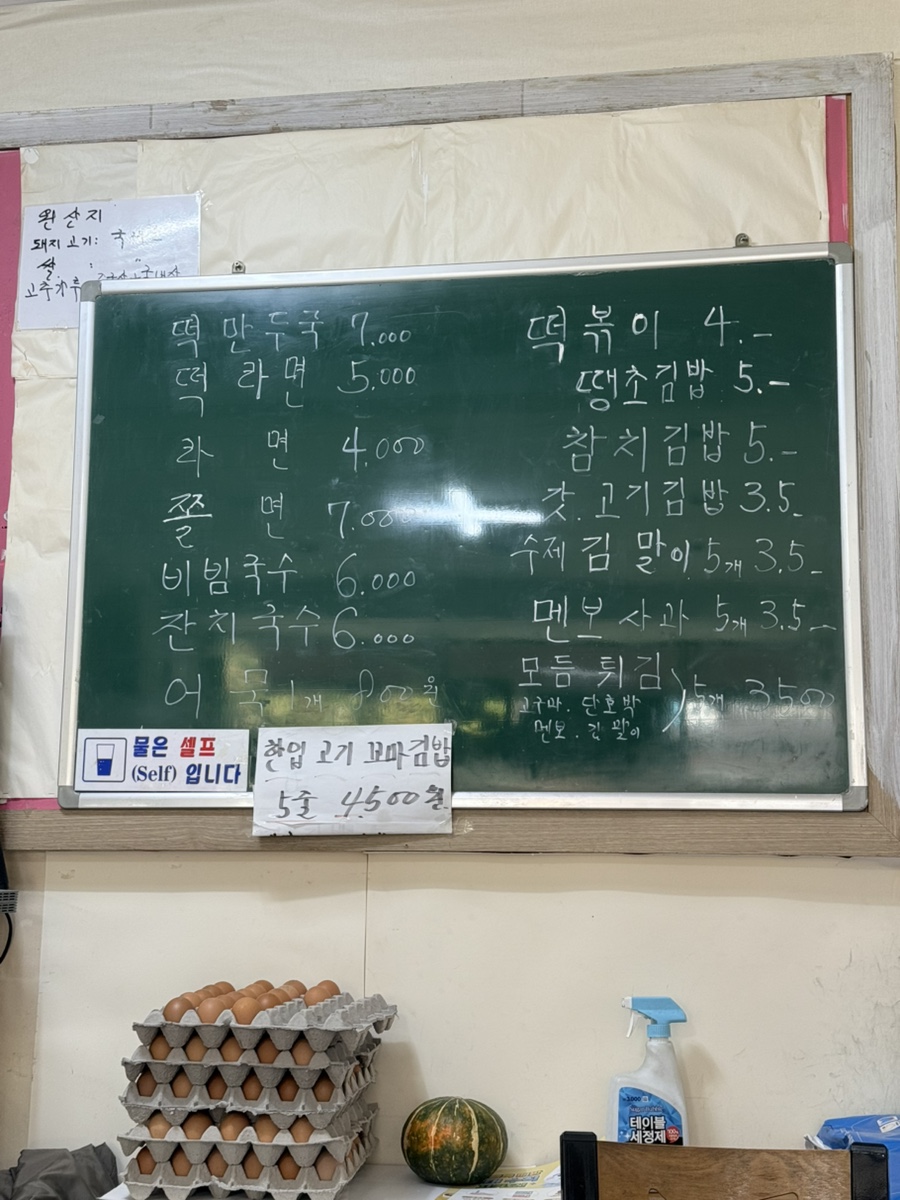 원산지
돼지고기: 국
쌀 : "
고추가루
떡만두국 7.000
떡라면 5.000
라면 4.000
쫄면 7.000
비빔국수 6.000
잔치국수 6.000
어묵 1개 800원
떡볶이 4.-
땡초김밥 5.-
참치김밥 5.-
갓.고기김밥 3.5-
수제김말이 5개 3.5-
멘보사과 5개 3.5-
모듬튀김 5개 3500
고구마. 단호박
멘보. 김말이
물은 셀프
(Self) 입니다
한입 고기 꼬마김밥
5줄 4,500원
테이블
세정제